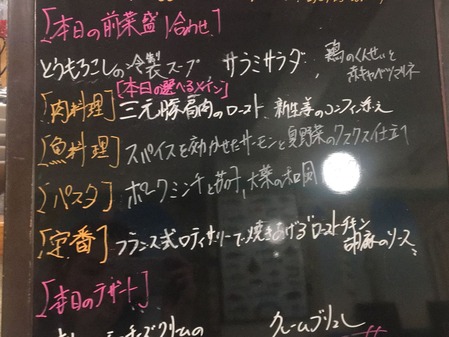 [本日の前菜盛り合わせ]
とうもろこしの冷製スープ サラミサラダ 鶏のくんせいと
赤キャベツマリネ
[本日の選べるメイン]
[肉料理] 三元豚肩肉のロースト、新生姜のコンフィ添え
[魚料理] スパイスを効かせたサーモンと夏野菜のクスクス仕立て
[パスタ] ポークミンチと茄子、大葉の和風
[定番] フランス式ロティサリーで焼きあげるローストチキン
胡麻のソース
[本日のデザート]
チーズクリームの クレームブリュレ